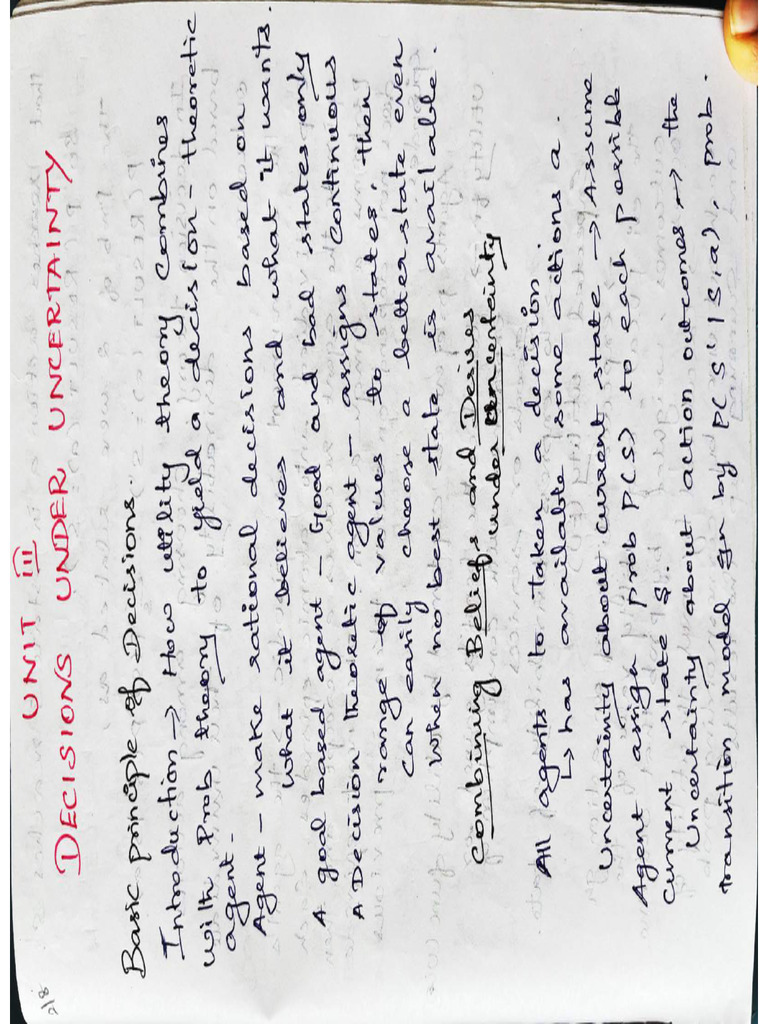 2/8
UNIT III
DECISIONS UNDER UNCERTAINTY
Basic principle of Decisions.
Introduction → How utility theory combines
with Prob theory to yield a decision - theoretic
agent.
Agent - make rational decisions based on
what it believes and what it wants.
A goal based agent - Good and bad states only
A Decision Theoretic agent - assigns Continuous
range of values to states, then
can easily choose a better state even
when no best state is available.
Combining Beliefs and Desires
under Uncertainty
All agents to taken a decision
↳ has available some actions a.
Uncertainty about current state → Assume
Agent assign prob P(S) to each possible
current state S.
Uncertainty about action outcomes → the
transition model gn by P(S' | S,a), prob.